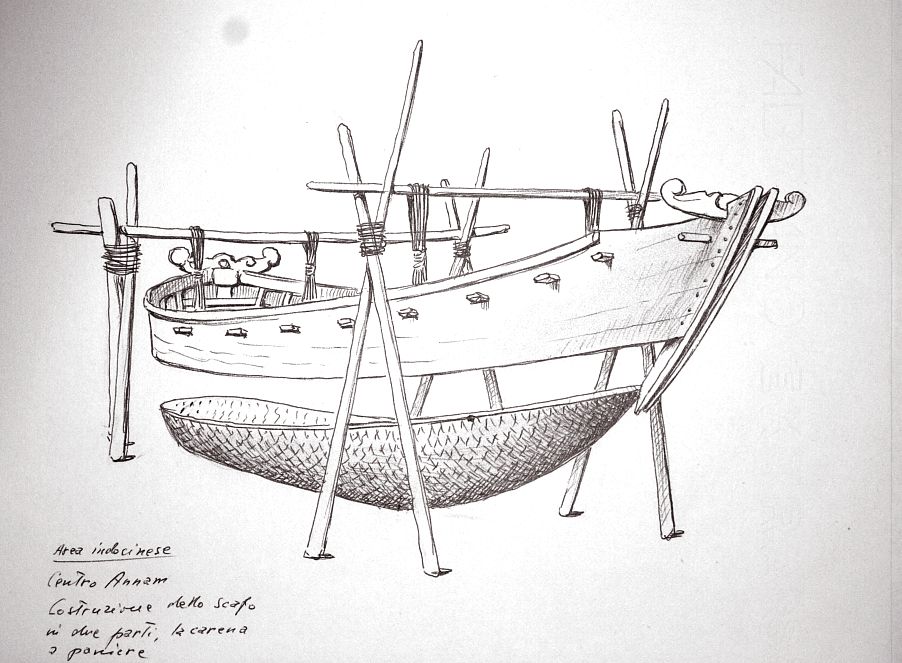 Area indocinese
Centro Annam
Costruzione dello scafo
in due parti, la carena
a paniere